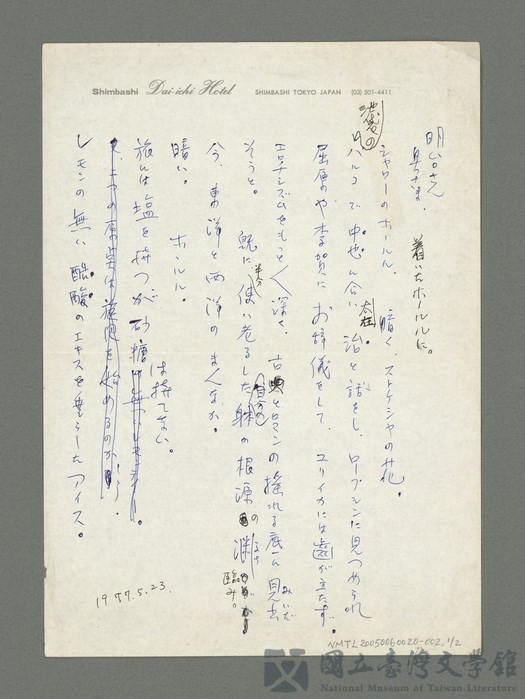 Shimbashi Dai-ichi Hotel SHIMBASHI TOKYO JAPAN (03) 501-4411
明台さん
着いたホールルに。
シャローのホールル、暗く、ストケシャの花。
池袋の
ハルコで中也に会い、太在治と話をし、ロープシンに見つめられ
屈原や李賀にお辞儀をして、ユリイカには歯が立たず。
エロチシズムをもっと深く、古典とロマンの揺れる底に見出
みいだ
そうと。既に半分使い老るした自分の躰の根源の渊
臨み。
今、東洋と西洋のまんなか。
暗い。ホールル。
旅人は塩を持つが砂糖は持てない。
レモンの無い酷酸のエキスを垂らしたアイス。
1987.5.23.
NMTL20050060020-002, 1/2
國立臺灣文學館
National Museum of Taiwan Literature